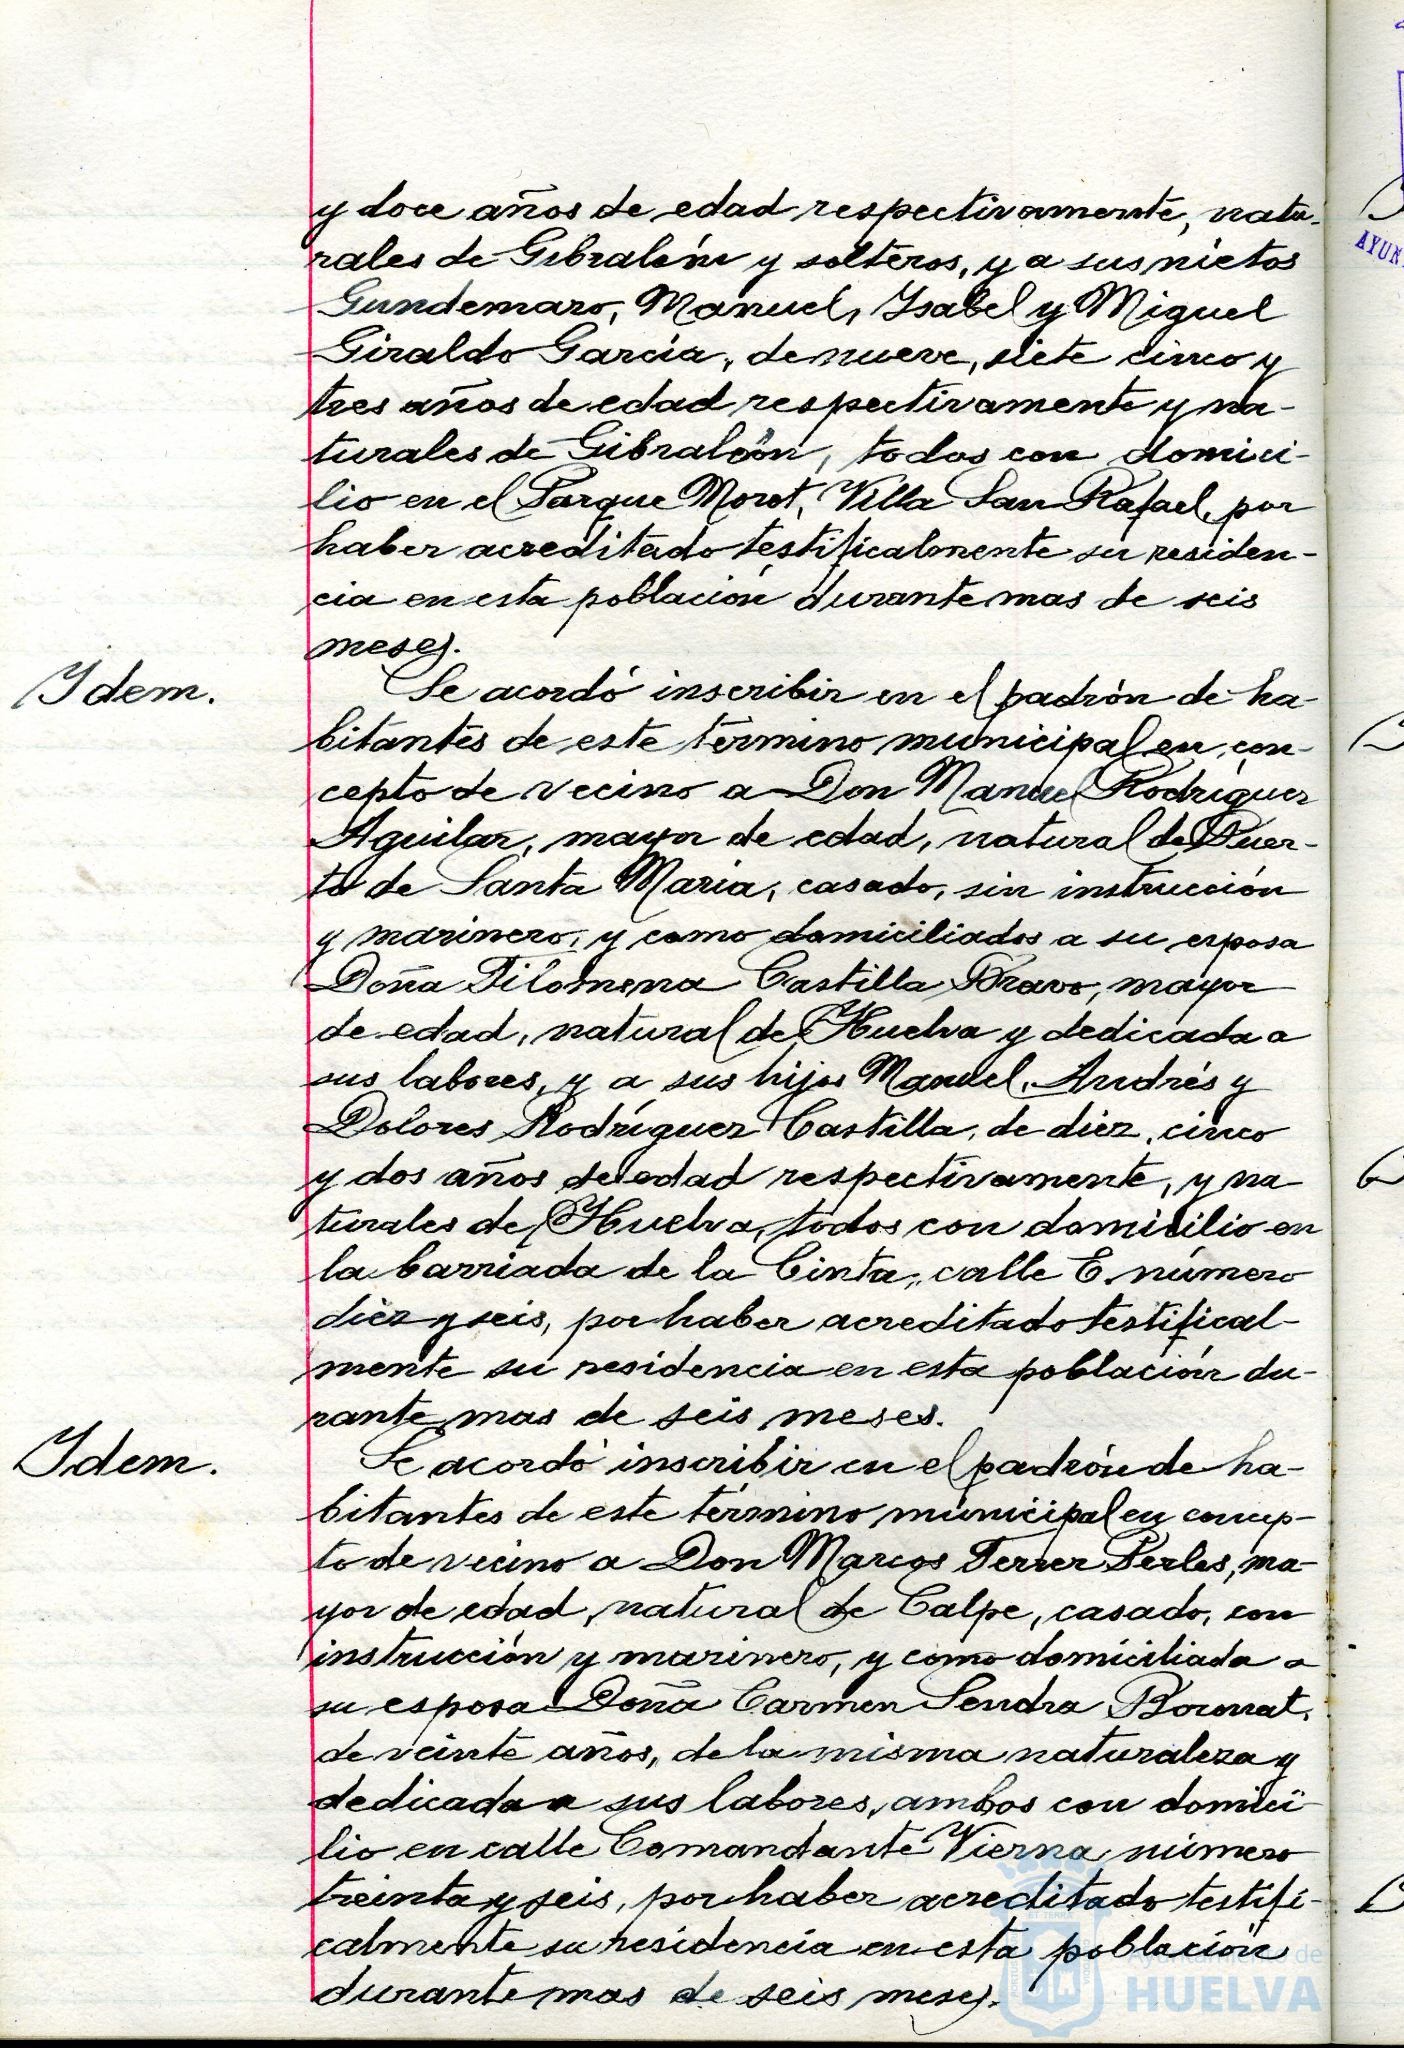 y doce años de edad respectivamente, natu-
rales de Gibraleón y solteros, y a sus nietos
Gundemaro, Manuel, Isabel y Miguel
Giraldo García, de nueve, siete cinco y
tres años de edad respectivamente y na-
turales de Gibraleón, todos con domici-
lio en el Parque Moret, Villa San Rafael, por
haber acreditado testificalmente su residen-
cia en esta población durante mas de seis
meses.
Idem.
Se acordó inscribir en el padrón de ha-
bitantes de este término municipal en con-
cepto de vecino a Don Manuel Rodríguez
Aguilar, mayor de edad, natural de Puer-
to de Santa María, casado, sin instrucción
y marinero, y como domiciliados a su esposa
Doña Filomena Castilla Bravo, mayor
de edad, natural de Huelva y dedicada a
sus labores, y a sus hijos Manuel, Andrés y
Dolores Rodríguez Castilla, de diez, cinco
y dos años de edad respectivamente, y na
turales de Huelva, todos con domicilio en
la barriada de la Cinta, calle E. número
diez y seis, por haber acreditado testifical-
mente su residencia en esta población du-
rante mas de seis meses.
Idem.
Se acordó inscribir en el padrón de ha-
bitantes de este término municipal en concep-
to de vecino a Don Marcos Ferrer Perles, ma-
yor de edad, natural de Calpe, casado, con
instrucción y marinero, y como domiciliada a
su esposa Doña Carmen Sendra Boronat,
de veinte años, de la misma naturaleza y
dedicada a sus labores, ambos con domici-
lio en calle Comandante Vierna, número
treinta y seis, por haber acreditado testifi-
calmente su residencia en esta población
durante mas de seis meses.
Ayuntamiento de
HUELVA
AYUN